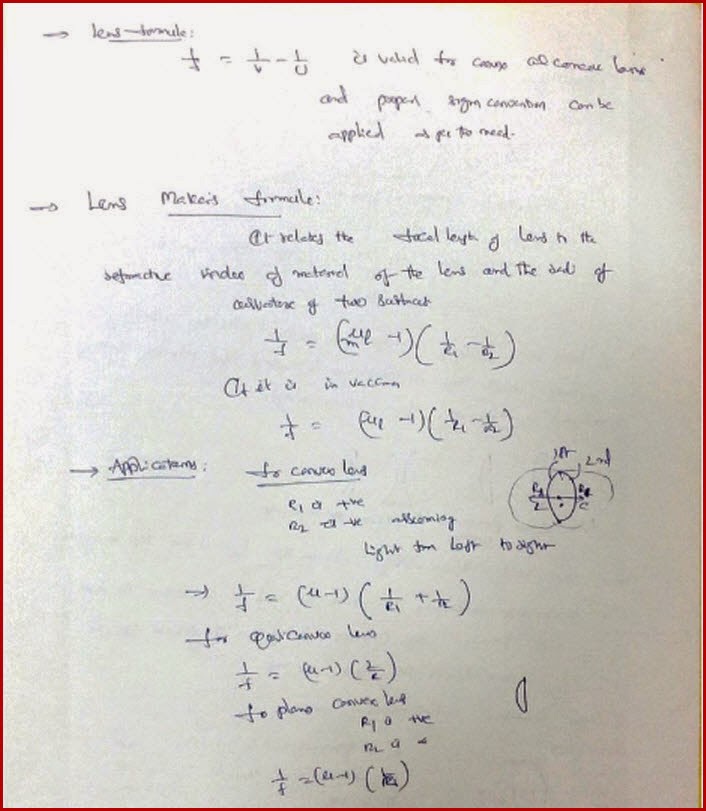 → Lens formula:
1/f = 1/v - 1/u is valid for convex and concave lens
and proper sign convention can be
applied as per the need.
→ Lens Maker's formula:
It relates the focal length of lens to the
refractive index of material of the lens and the radi of
curvature of two surfaces
1/f = (μl/m - 1)(1/R1 - 1/R2)
If it is in vaccum
1/f = (μl - 1)(1/R1 - 1/R2)
→ Applications: for convex lens
1st 2nd
R1 is +ve
R2 is -ve assuming
Light from Left to right
→ 1/f = (μ-1)(1/R1 + 1/R2)
for equiconvex lens
1/f = (μ-1)(2/R)
for plano convex lens
R1 is +ve
R2 is ∞
1/f = (μ-1)(1/R1)